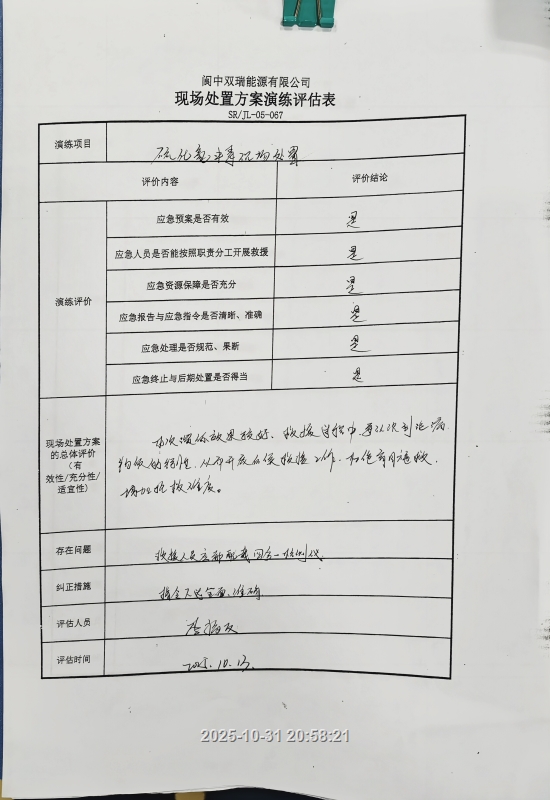 阆中双瑞能源有限公司
现场处置方案演练评估表
SR/JL-05-067
演练项目
硫化氢中毒现场处置
评价内容 评价结论
演练评价
应急预案是否有效 是
应急人员是否能按照职责分工开展救援 是
应急资源保障是否充分 是
应急报告与应急指令是否清晰、准确 是
应急处理是否规范、果断 是
应急终止与后期处置是否得当 是
现场处置方案
的总体评价
(有
效性/充分性/
适宜性)
本次演练效果较好、救援过程中, 要认识到
的特性, 从而开展后续救援工作,
增加抢救难度。
存在问题 救援人员 配戴四合一检测仪
纠正措施 指令下达全面、准确
评估人员
评估时间 2025.10.13.
2025-10-31 20:58:21